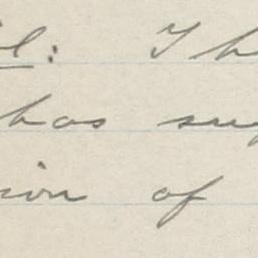 il: Th
has sug
ion of